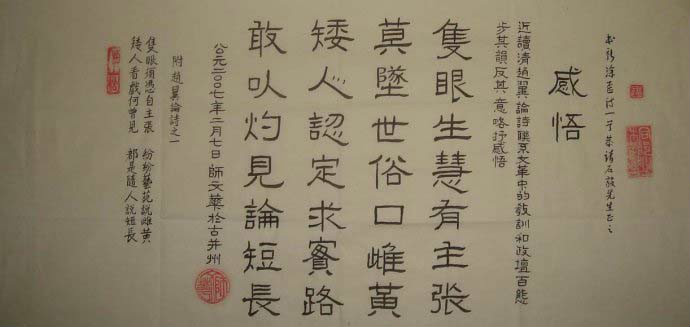 先生正之
感悟
近讀清趙翼論詩聯系文革中的教訓和政壇百態
步其韻反其意略抒感悟
隻眼生慧有主張
莫墜世俗口雌黃
矮人認定求實路
敢以灼見論短長
公元二〇〇七年二月七日師文華於古并州
附趙翼論詩之一
隻眼須憑自主張 紛紛藝苑說雌黃
矮人看戲何曾見 都是隨人說短長